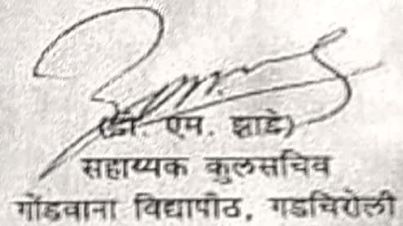 (डी. एम. झाडे)
सहाय्यक कुलसचिव
गोंडवाना विद्यापीठ, गडचिरोली